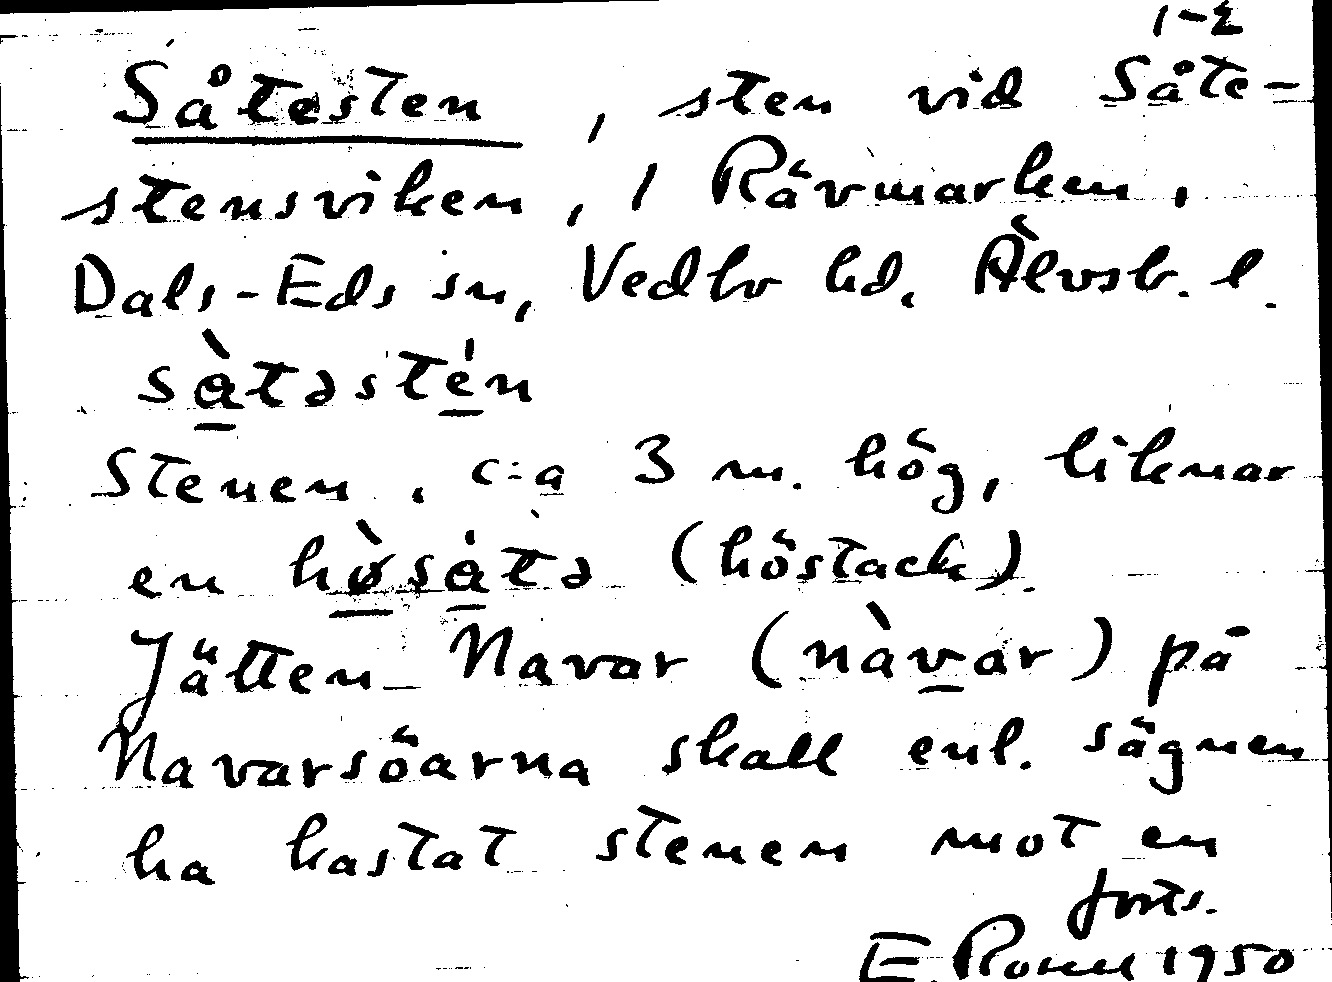 1-2
Såtesten, sten vid Såte-
stensviken, i Rävmarken,
Dals-Eds sn, Vedbo hd. Älvsb. l.
sàtəstén
Stenen, c:a 3 m. hög, liknar
en hø̀sátə (höstack).
Jätten Navar (nàvar) på
Navarsöarna skall enl. sägnen
ha kastat stenen mot en
forts.
E. 1950